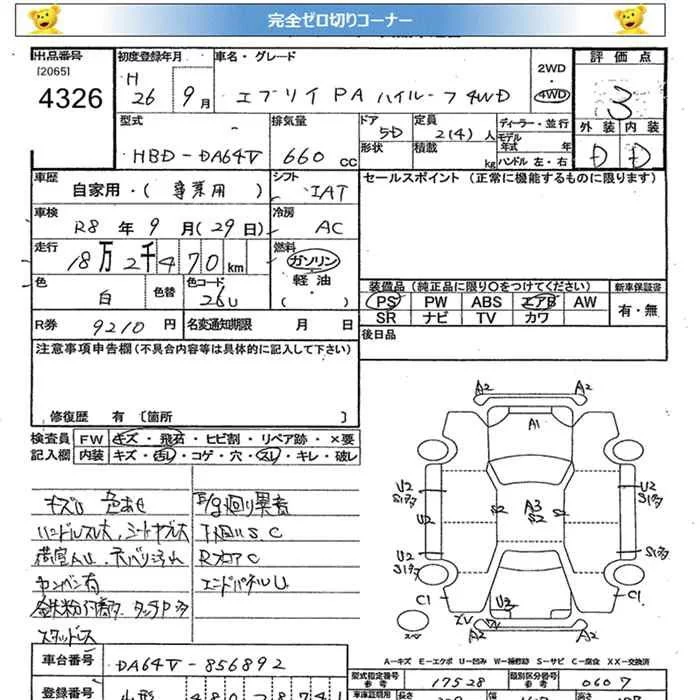 完全ゼロ切りコーナー
出品番号
[2065]
4326
初度登録年月
H
26年 9月
車名・グレード
エブリイ PA ハイルーフ 4WD
2WD
・
4WD
評価点
3
外装 内装
D D
型式
HBD-DA64V
排気量
660 cc
ドア
5D
形状
定員
2(4)人
積載
kg
ディーラー・並行
モデル年式 年
ハンドル 左・右
車歴
自家用・(事業用)
シフト
IAT
セールスポイント(正常に機能するものに限ります)
車検
R8年9月(29日)
冷房
AC
走行
18万2千470km
燃料
ガソリン
・
軽油
( )
色
白
色替
色コード
26U
装備品(純正品に限り○をつけてください)
PS PW ABS エアB AW
SR ナビ TV カワ
新車保証書
有・無
R券 9210円
名変通知期限 月 日
後日品
注意事項申告欄(不具合内容等は具体的に記入して下さい)
修復歴 有 〔箇所 〕
検査員記入欄
FW キズ・飛石・ヒビ割・リペア跡・×要
内装 キズ・汚レ・コゲ・穴・スレ・キレ・破レ
キズU 色あせ
ハンドルスレ大、シートヤブレ大
荷室AU、天バリ汚れ
カンバン有
鉄粉付着多 タッチP多
スタッドレス
下廻りS、C
RフロアC
エンドパネルU
A2 A2
A1
U2 S1多
U2
S2
A3
S2
S2
U2 S1多
U2 S1多
S1多
C1 C1
U3
A2 A2
A-キズ E-エクボ U-凹み W-補修跡 S-サビ C-腐食 XX-交換済
車台番号
DA64V-856892
型式指定番号
参考
17528
類別区分番号
参考
0607
登録番号
山形 480
車庫証明用
長さ
幅
高さ